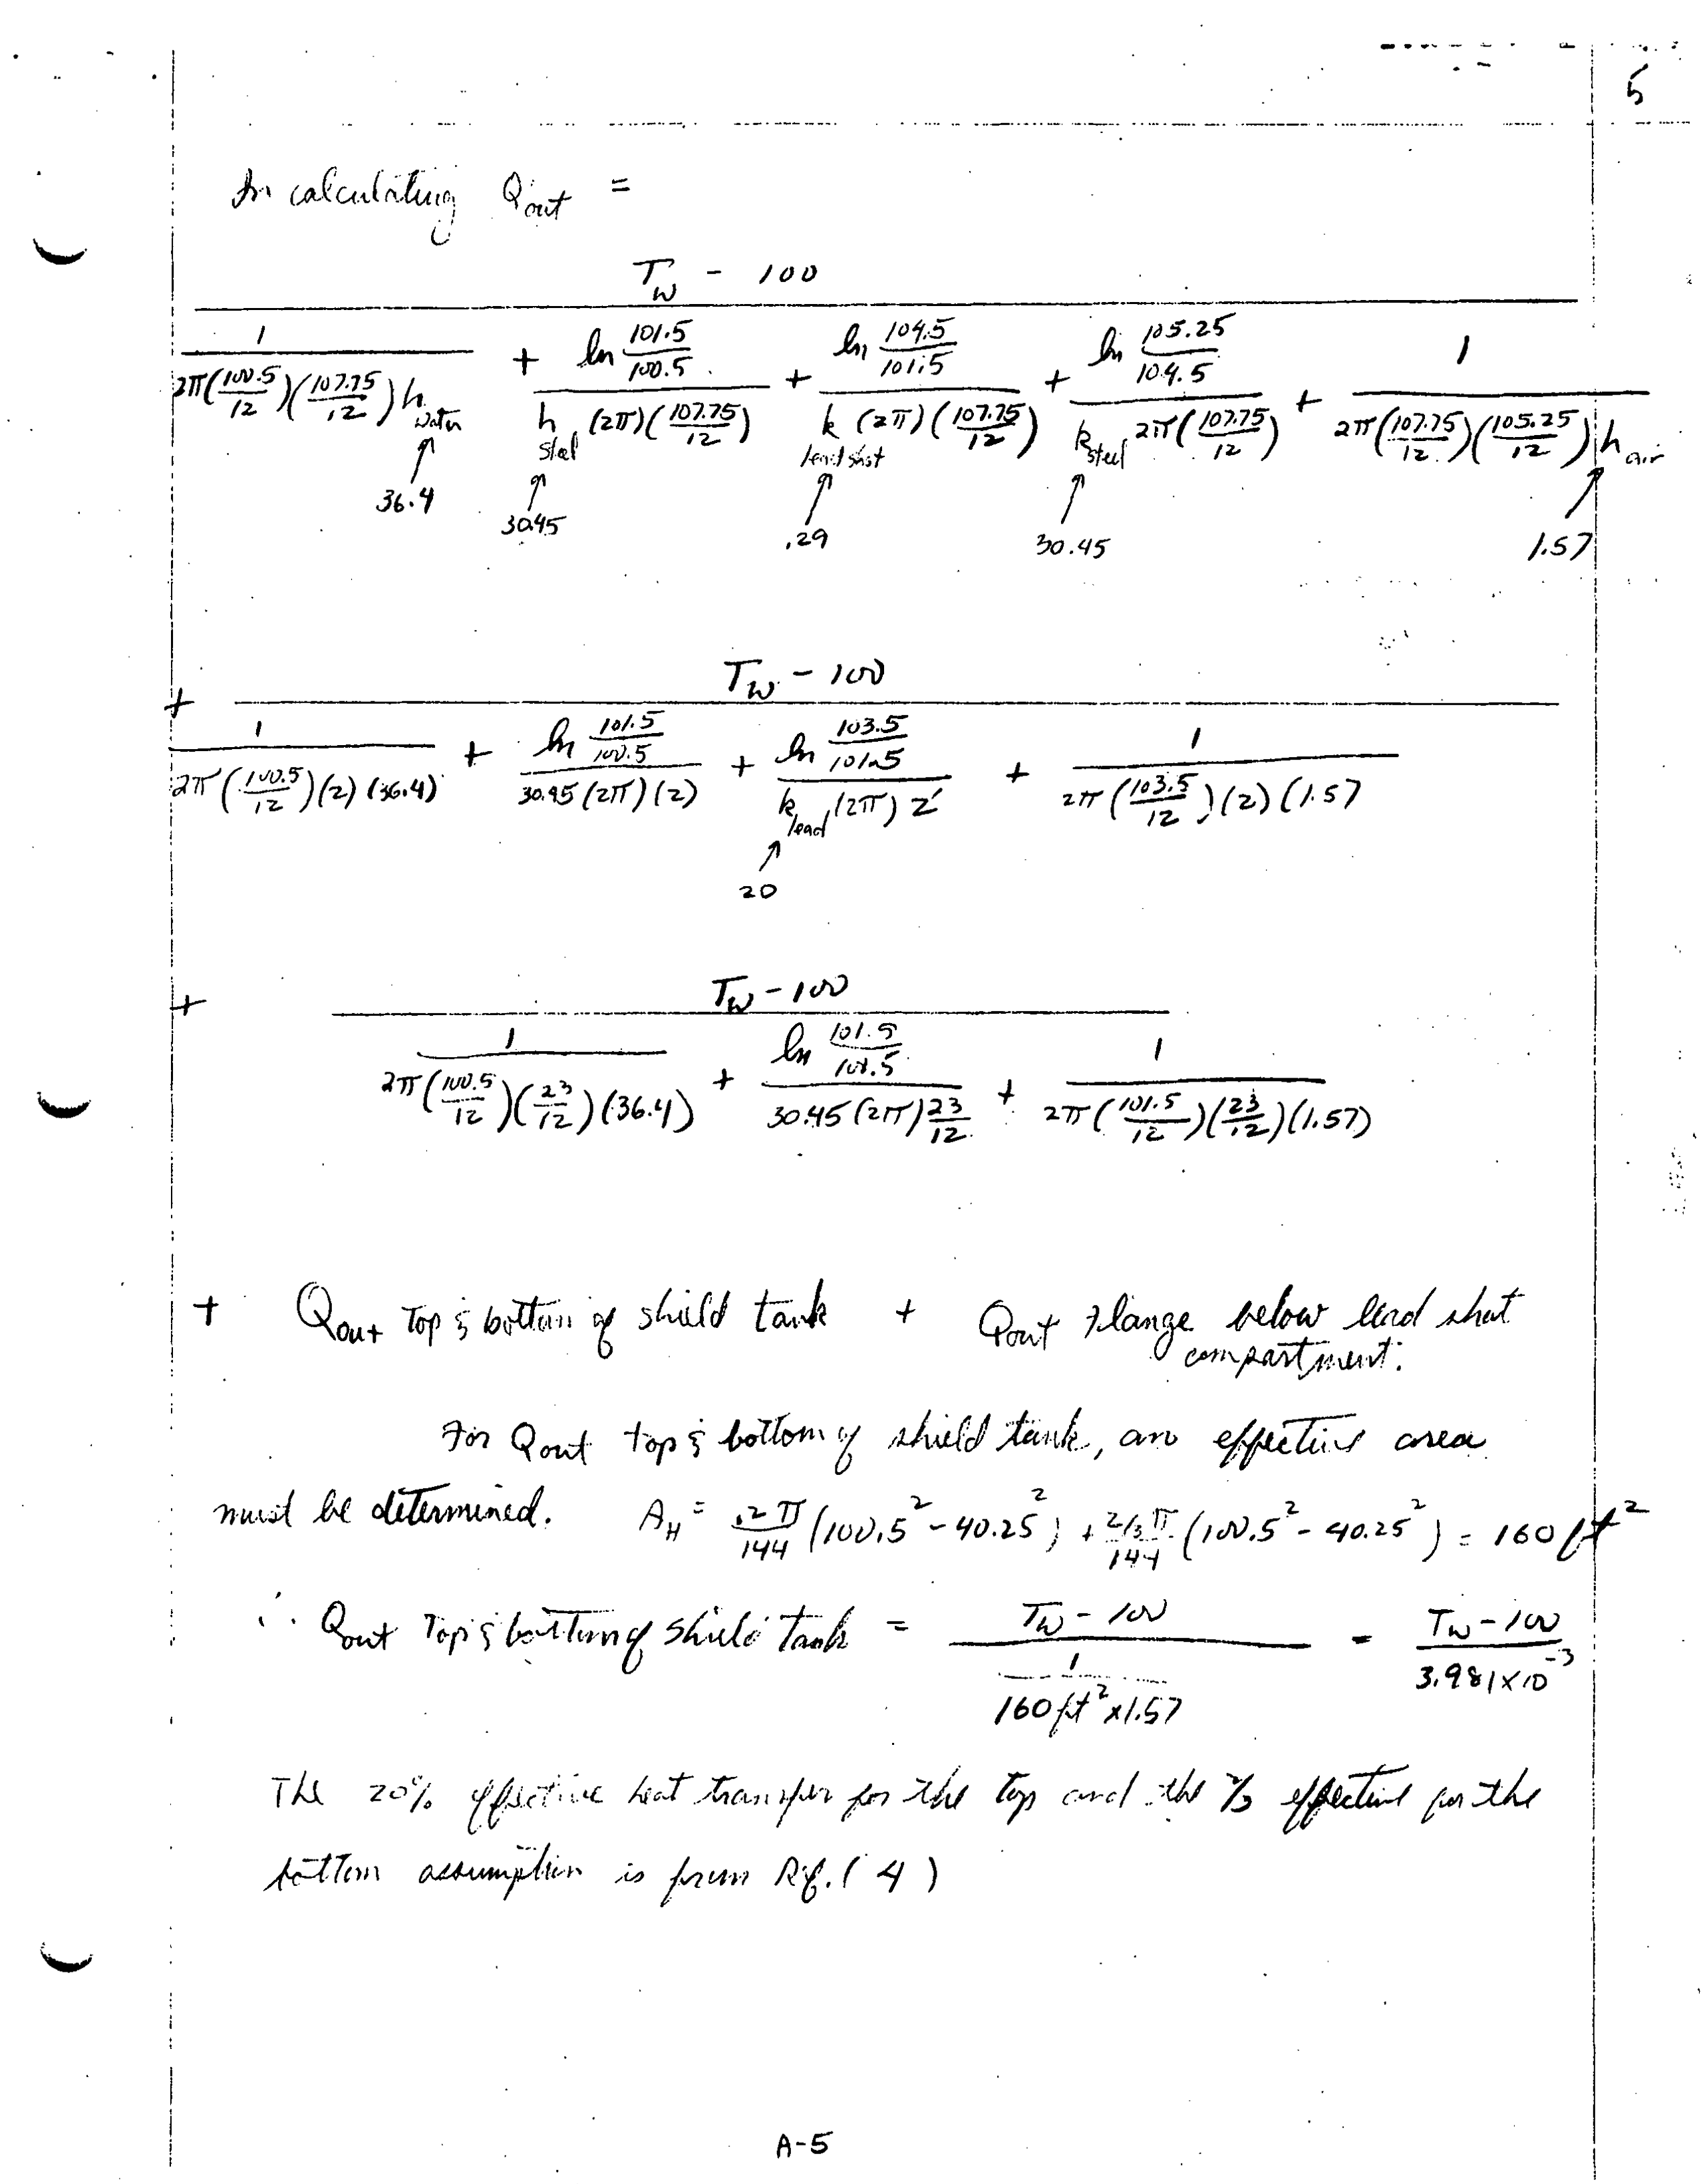 5
In calculating Qout =
Tw - 100
1 / 2π(100.5/12)(107.75/12) h water + ln 101.5/100.5 / h steel (2π)(107.75/12) + ln 104.5/101.5 / k lead shot (2π)(107.75/12) + ln 105.25/104.5 / k steel 2π(107.75/12) + 1 / 2π(107.75/12)(105.25/12) h air
36.4 30.45 .29 30.45 1.57
+ Tw - 100
1 / 2π(100.5/12)(2)(36.4) + ln 101.5/100.5 / 30.45(2π)(2) + ln 103.5/101.5 / k lead (2π) 2' + 1 / 2π(103.5/12)(2)(1.57
20
+ Tw - 100
1 / 2π(100.5/12)(23/12)(36.4) + ln 101.5/100.5 / 30.45(2π)23/12 + 1 / 2π(101.5/12)(23/12)(1.57)
+ Qout Top & bottom of shield tank + Qout Flange below lead shot
compartment.
For Qout top & bottom of shield tank, an effective area
must be determined. AH = .2π/144 (100.5² - 40.25²) + 2/3 π/144 (100.5² - 40.25²) = 160 ft²
∴ Qout Top & bottom of shield Tank = Tw - 100 / 1 / 160 ft² x 1.57 = Tw - 100 / 3.981 x 10⁻³
The 20% effective heat transfer for the top and the 2/3 effective for the
bottom assumption is from Ref. (4)
A-5